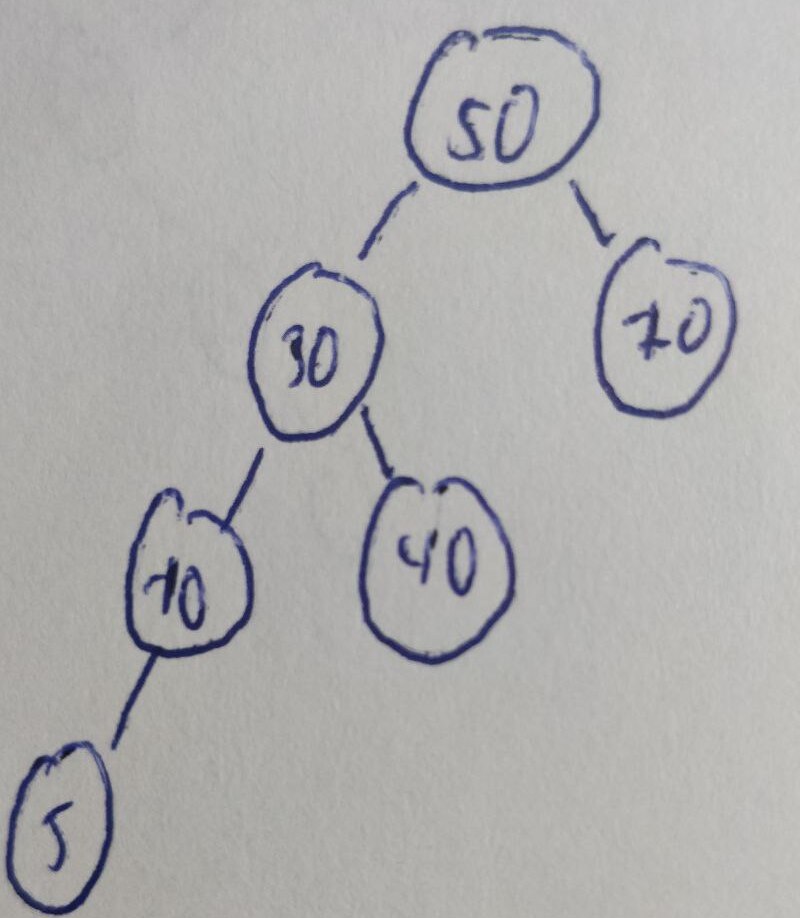 50
30
70
10
40
5